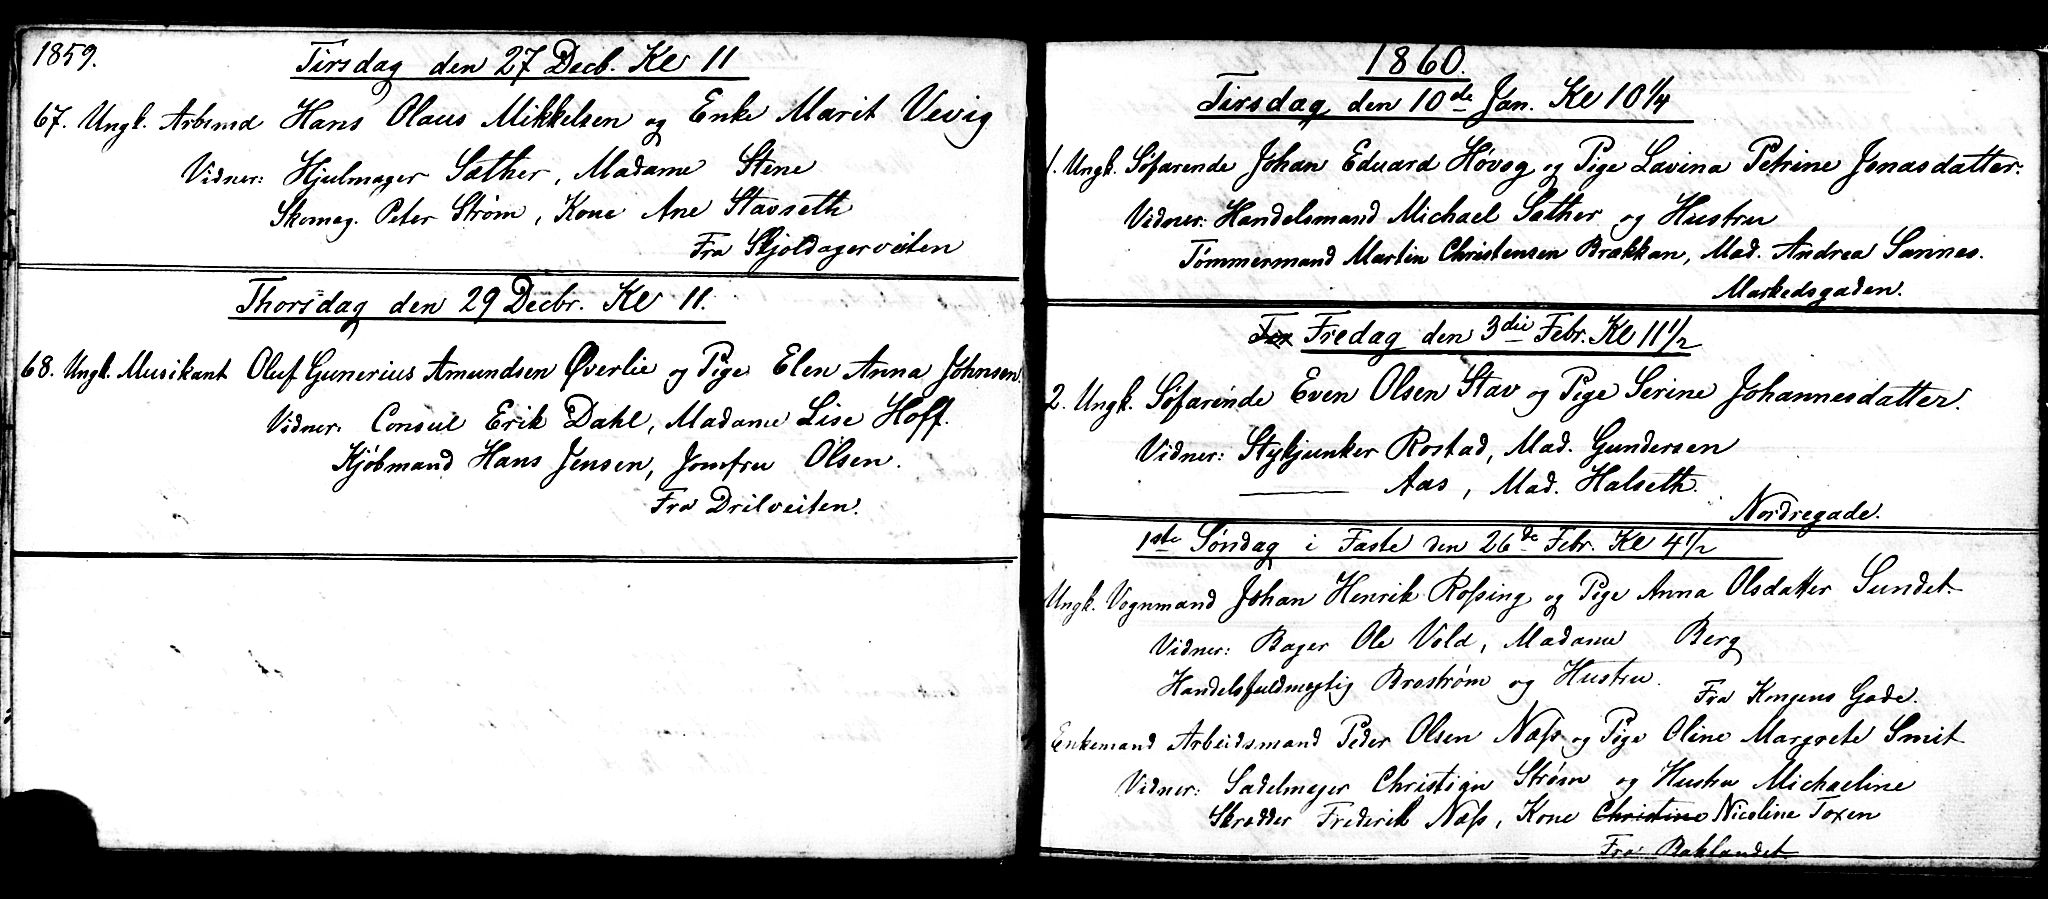 1859.
Tirsdag den 27 Decb. Kl 11
67. Ungk. Arbmd Hans Olaus Mikkelsen og Enke Marit Vevig
Vidner: Hjulmager Sæther, Madame Stene
Skomag. Peter Strøm, Kone Ane Stavseth
Fra Skjoldagerveiten
Thorsdag den 29 Decbr. Kl 11.
68. Ungk. Musikant Oluf Gunerius Amundsen Øverlie og Pige Elen Anna Johnsen
Vidner: Consul Erik Dahl, Madame Lise Hoff.
Kjöbmand Hans Jensen, Jomfru Olsen.
Fra Drilveiten.
1860.
Tirsdag den 10de Jan. Kl 10 1/4
1. Ungk. Søfarende Johan Eduard Høvog og Pige Lavina Petrine Jonasdatter.
Vidner: Handelsmand Michael Sæther og Hustru
Tømmermand Martin Christensen Brækkan, Mad. Andrea Sannes.
Markedsgaden.
Fredag den 3die Febr. Kl 11 1/2
2. Ungk. Søfarende Even Olsen Stav og Pige Serine Johannesdatter.
Vidner: Stykjunker Rostad, Mad. Gundersen
——— Aas, Mad. Halseth.
Nordregade.
1ste Søndag i Faste den 26de Febr. Kl 4 1/2
Ungk. Vognmand Johan Henrik Rossing og Pige Anna Olsdatter Sundet.
Vidner: Bager Ole Vold, Madame Berg
Handelsfuldmegtig Brostrøm og Hustru.
Fra Kongens Gade.
Enkemand Arbeidsmand Peder Olsen Næss og Pige Oline Margrete Smit
Vidner: Sadelmager Christian Strøm og Hustru Michaeline
Skrædder Frederik Næss, Kone Christine Nicoline Toxen
Fra Baklandet